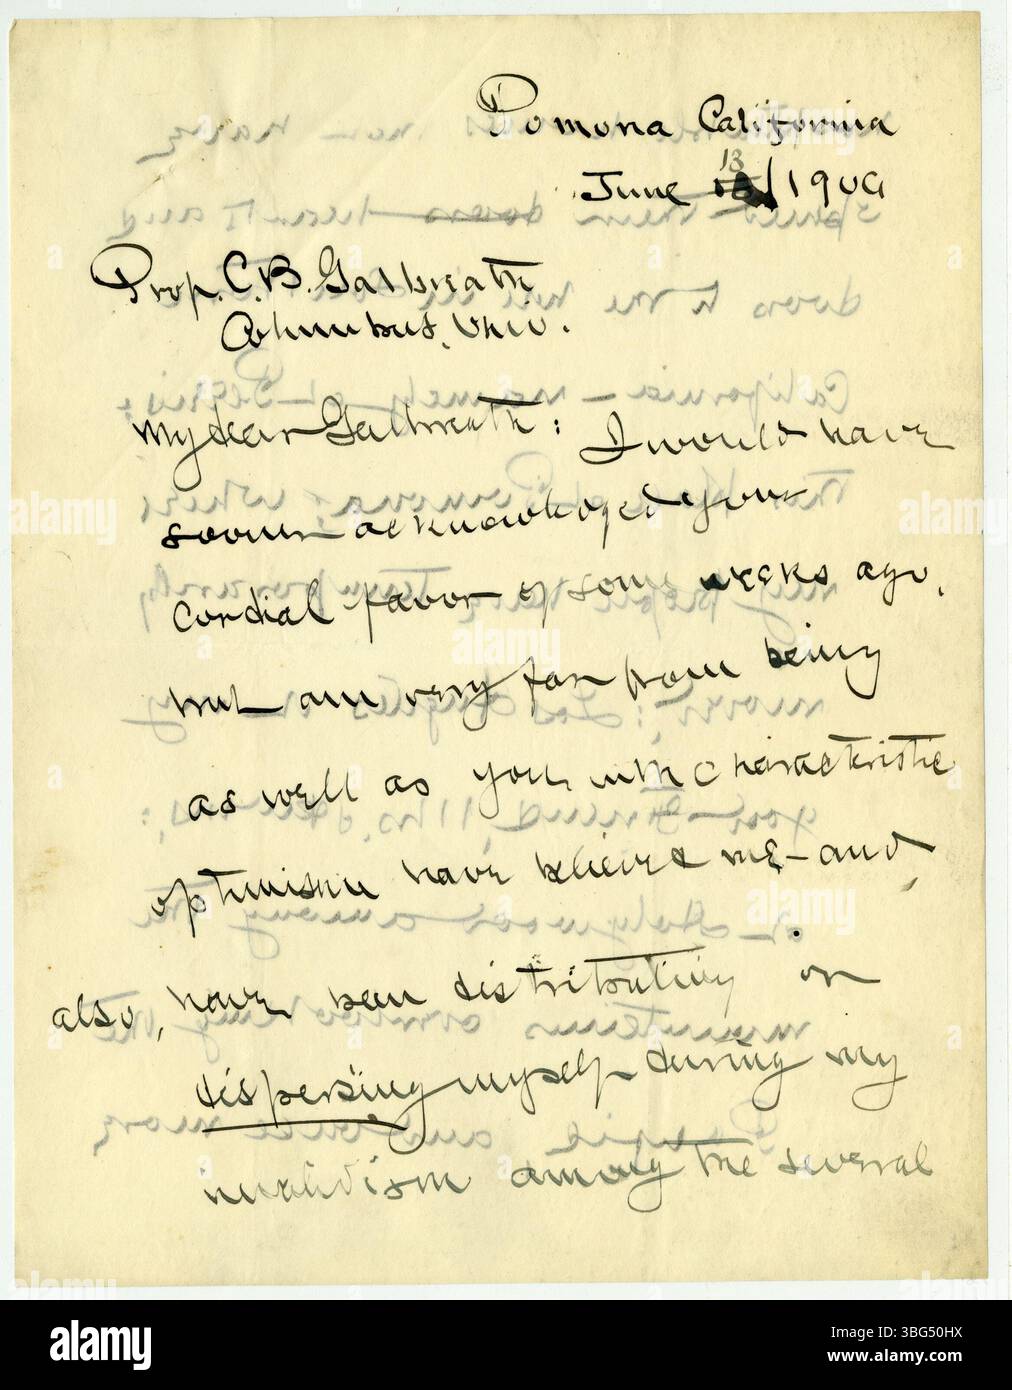 Pomona California
June 13/1909
Prof. C. B. Galbreath
Columbus, Ohio.
My dear Galbreath: I would have
sooner acknowledged your
cordial favor of some weeks ago,
but am very far from being
as well as you with characteristic
optimism have believed me - and,
also, have been distributing or
dispersing myself during my
invalidism among the several
alamy
Image ID: 3BG50HX
www.alamy.com